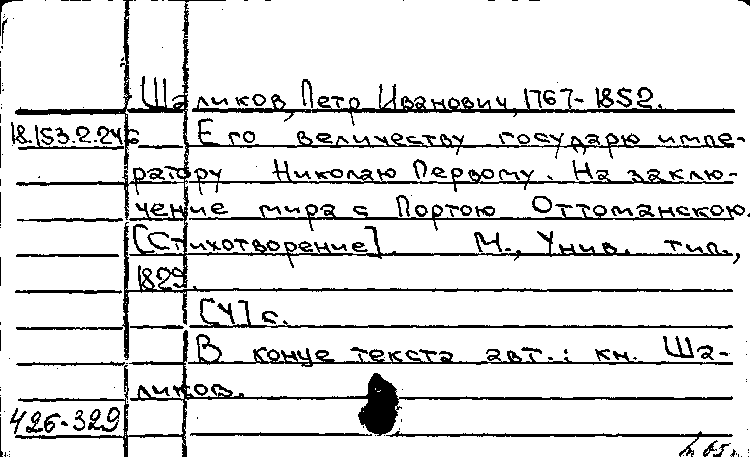 Шаликов, Петр Иванович, 1767-1852.
18.153.2.246 Его величеству государю импе-
ратору Николаю Первому. На заклю-
чение мира с Портою Оттоманскою.
[Стихотворение]. М., Унив. тип.,
1829.
[4] с.
В конце текста авт.: кн. Ша-
ликов.
426-329